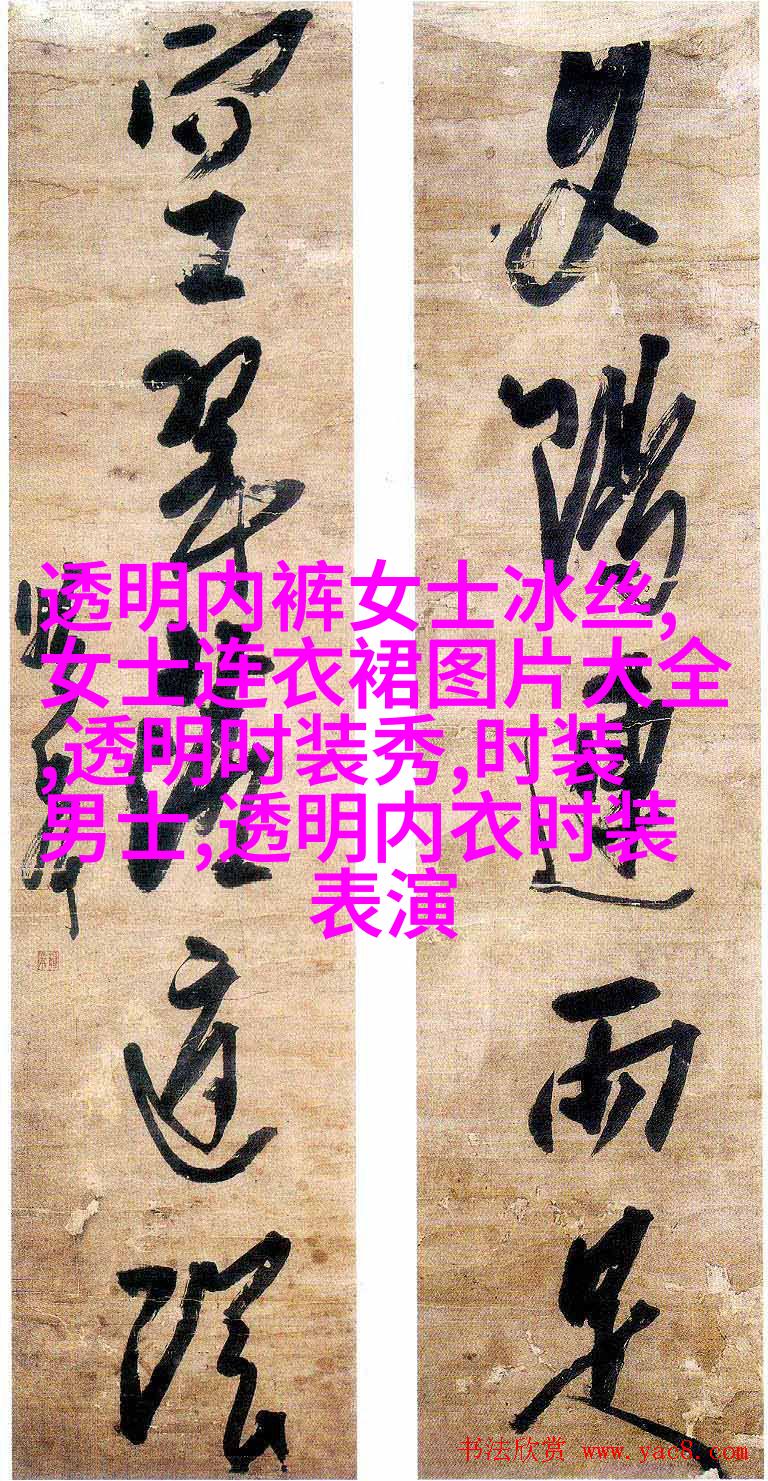 夕陽連雨足
空翠落庭陰
透明内裤女士冰丝,
女士连衣裙图片大全
,透明时装秀,时装
男士,透明内衣时装
表演
书法欣赏 www.yac8.com